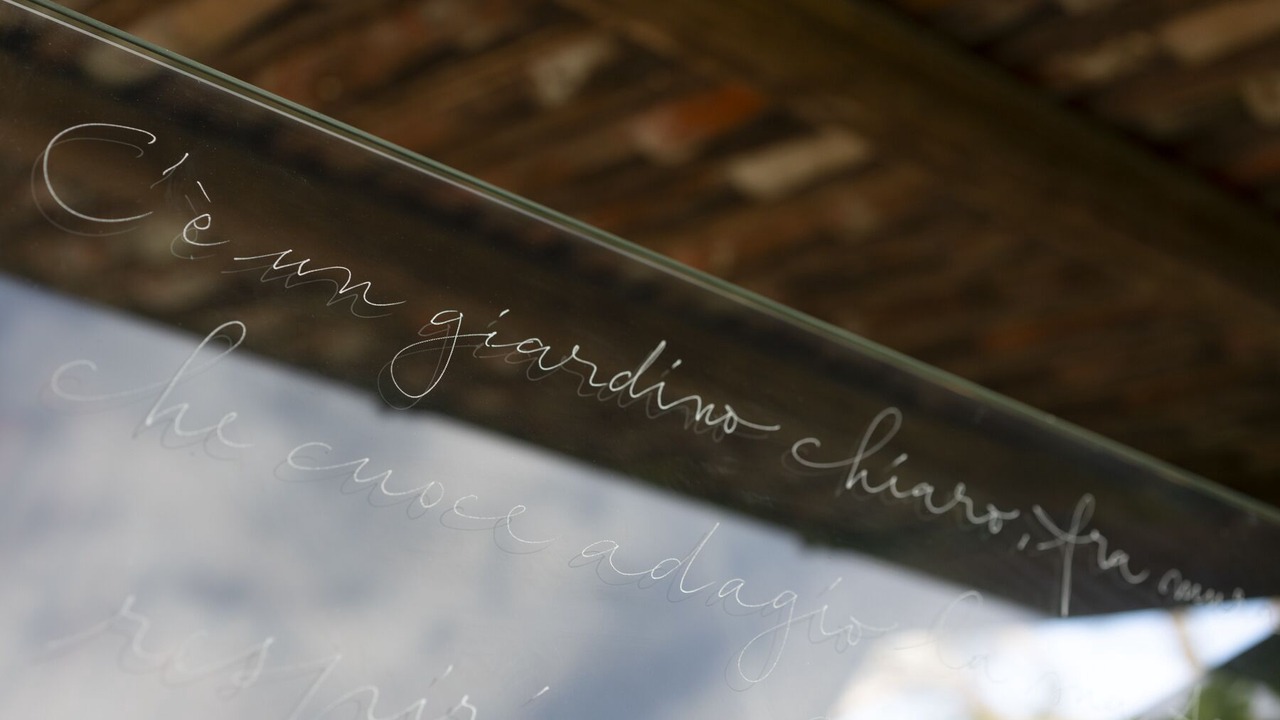 C'è un giardino chiaro, fra
che cuoce adagio la